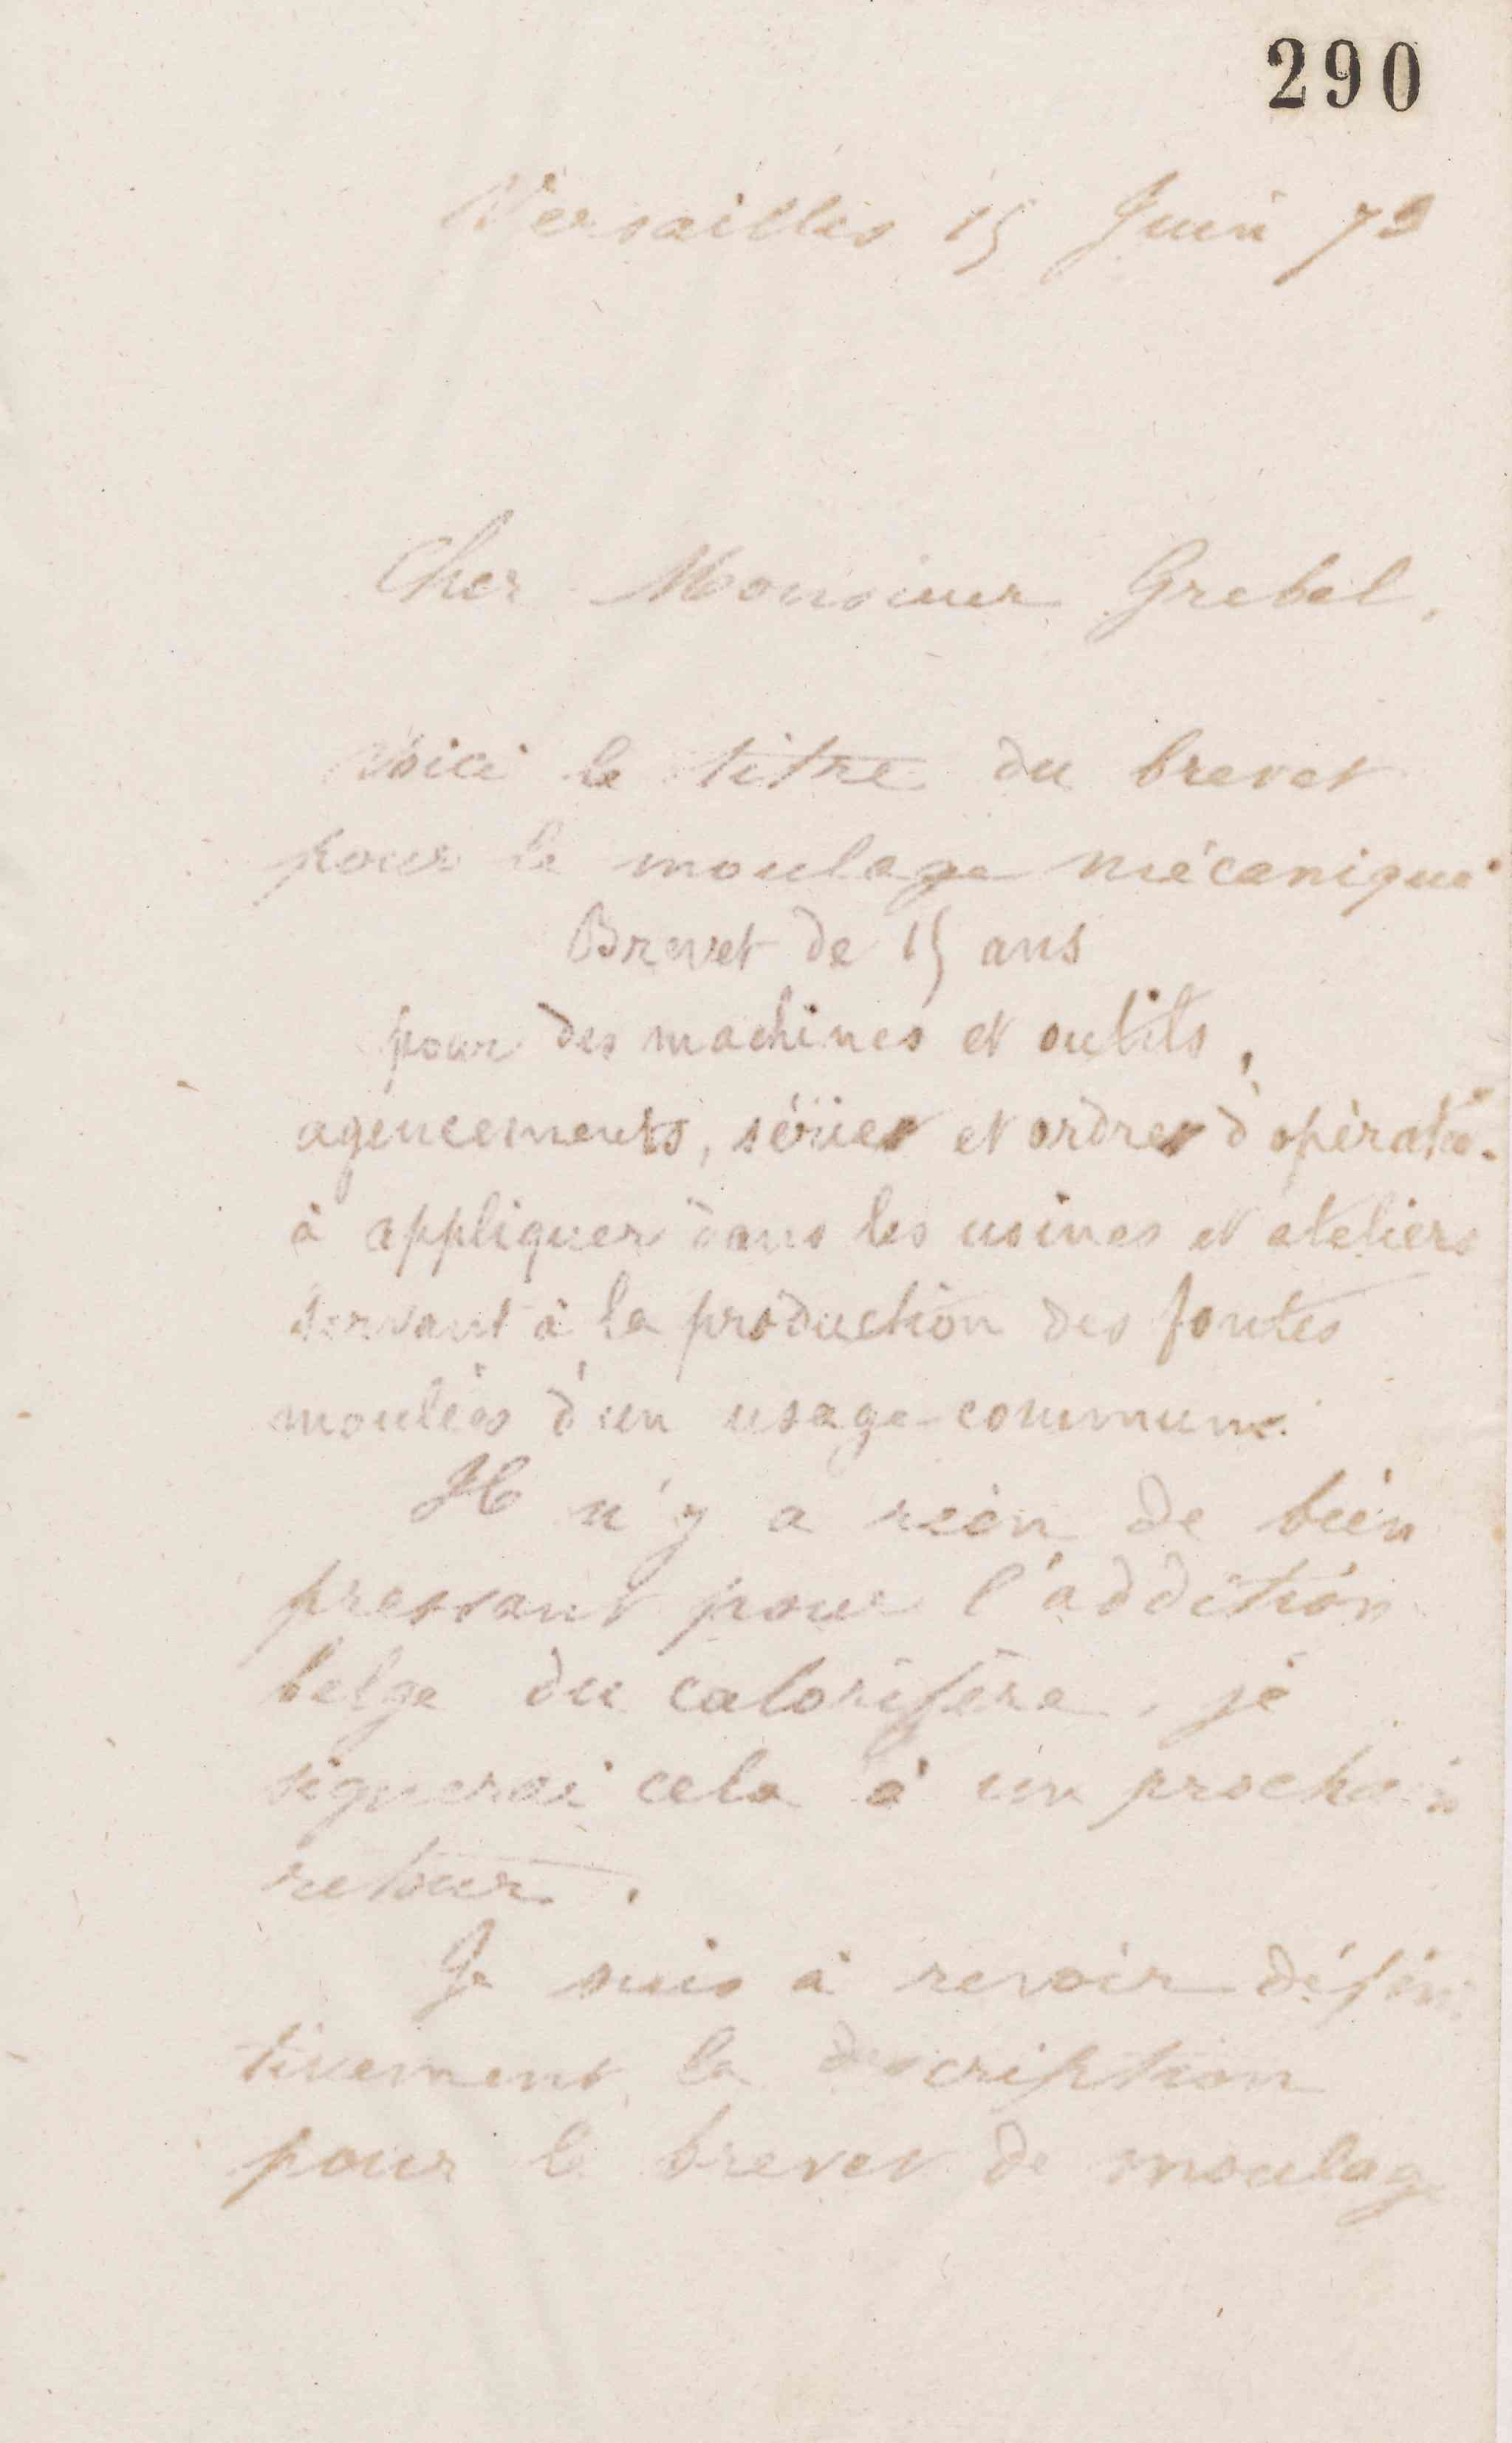 290
Versailles 15 Juin 73
Cher Monsieur Grebel,
Voici le titre du brevet
pour le moulage mécanique
Brevet de 15 ans
pour des machines et outils,
agencements, séries et ordres d'opératio-
à appliquer dans les usines et ateliers
servant à la production des fontes
moulées d'un usage commun.
Il n'y a rien de bien
pressant pour l'addition
belge du calorifère, je
signerai cela à un prochain
retour.
Je suis à revoir défini
tivement la description
pour le brevet de moulage